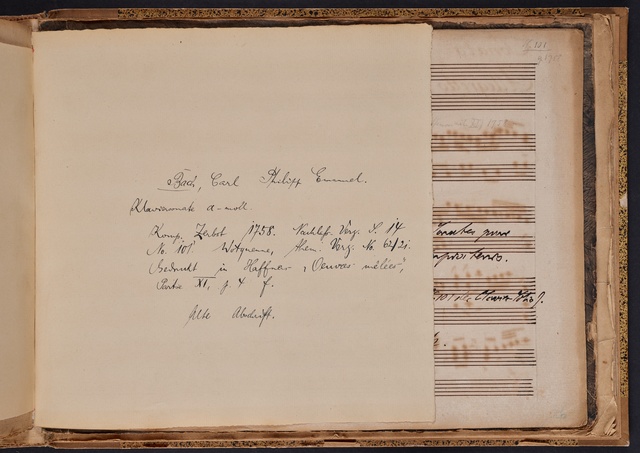 Bach, Carl Philipp Emanuel.
Klaviersonate a-moll.
Komp. Zerbst 1758. Nachlaß-Verz. S. 14
No. 101. Wotquenne, Them. Verz. No 62/21.
Gedruckt in Haffner „Oeuvres mêlées",
Partie XI, p. 4 f.
Alte Abschrift.